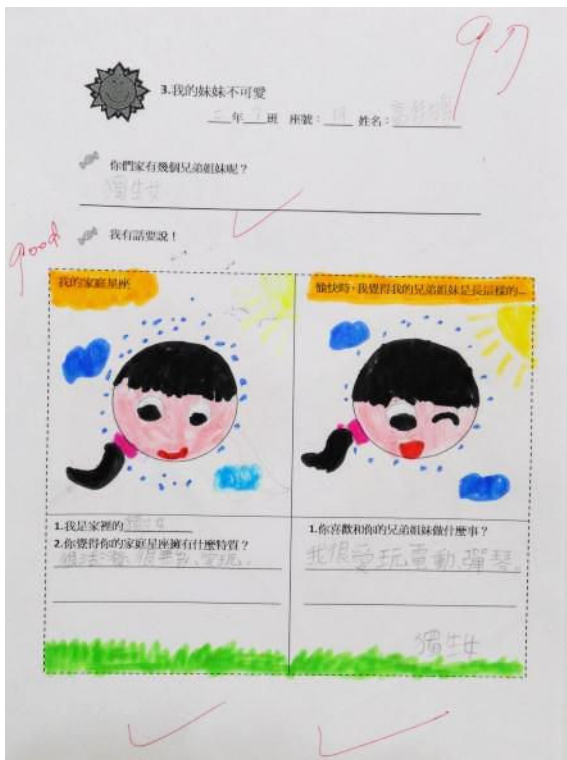 97
3.我的妹妹不可愛
年 班 座號： 姓名：
你們家有幾個兄弟姐妹呢？
獨生女
good
我有話要說！
我的家庭星座
愉快時，我覺得我的兄弟姐妹是長這樣的...
1.我是家裡的獨生女
2.你覺得你的家庭星座擁有什麼特質？
很活潑、愛玩.
1.你喜歡和你的兄弟姐妹做什麼事？
我很愛玩電動、彈琴。
獨生女